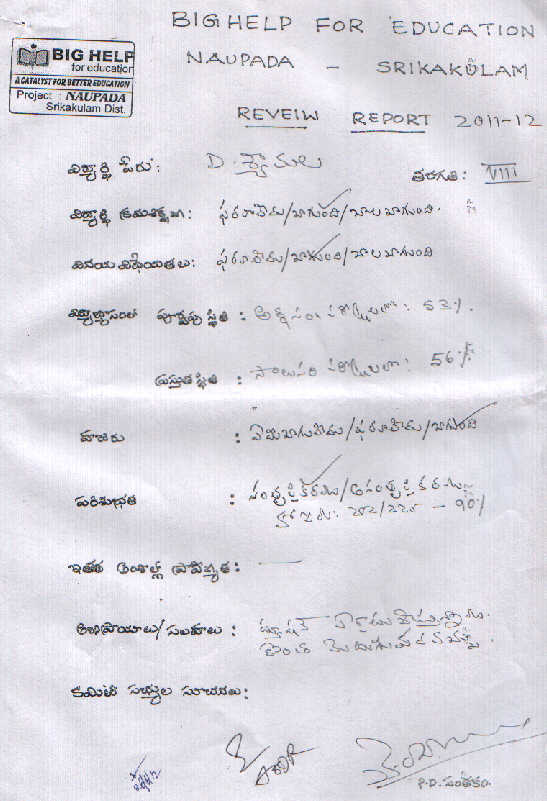 BIG HELP FOR EDUCATION
NAUPADA - SRIKAKULAM
BIG HELP
for education
A CATALYST FOR BETTER EDUCATION
Project : NAUPADA
Srikakulam Dist.
REVEIW REPORT 2011-12
విద్యార్థి పేరు: D. శ్యామల తరగతి: VIII
విద్యార్థి క్రమశిక్షణ: ఫరవాలేదు/బాగుంది/చాలా బాగుంది.
వినయ విధేయతలు: ఫరవాలేదు/బాగుంది/చాలా బాగుంది
విద్యాభ్యాసంలో పూర్వపు స్థితి : 53%.
ప్రస్తుత స్థితి : 56%
హాజరు : ఏమిబాగులేదు/ఫరవాలేదు/బాగుంది
పరిశుభ్రత : సంతృప్తికరము/అసంతృప్తికరము
202/225 - 90%
ఇతర అంశాల్లో ప్రావీణ్యత: —
అభిప్రాయాలు/సలహాలు :
కమిటీ సభ్యుల సూచనలు:
P.D. సంతకం